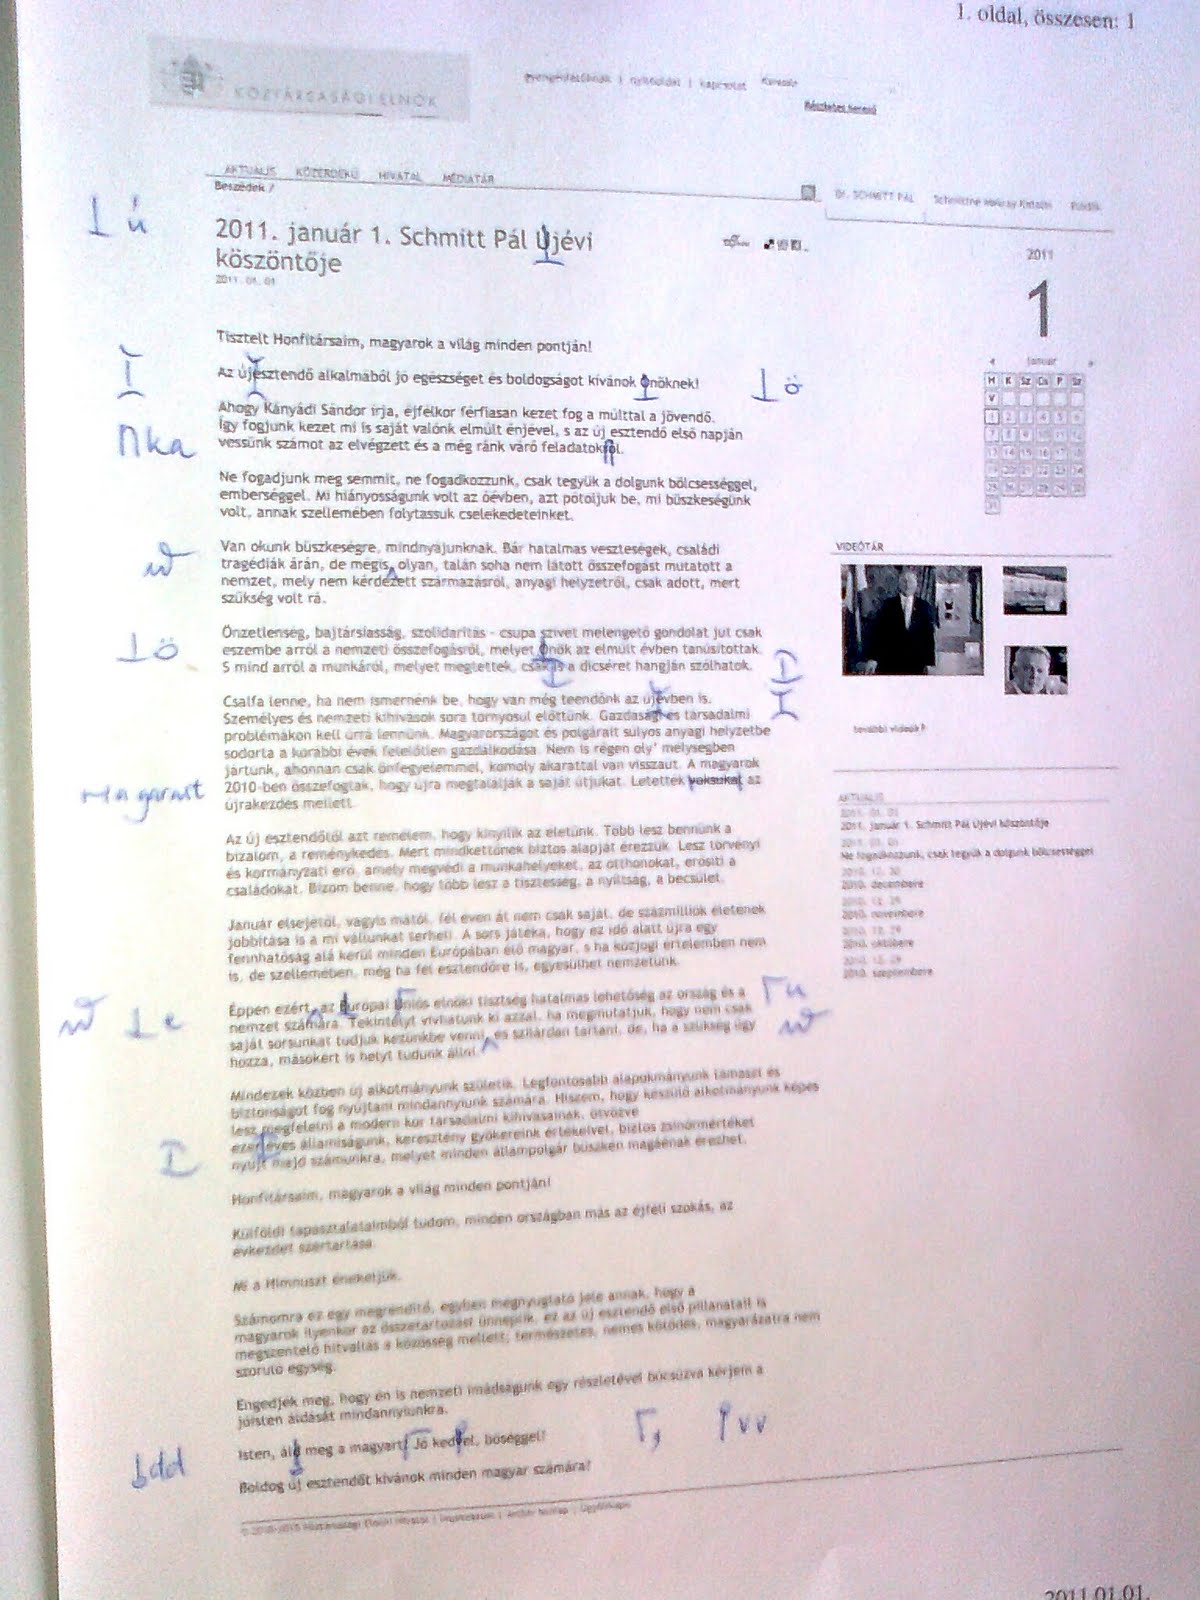 1. oldal, összesen: 1
KÖZTÁRSASÁGI ELNÖK
nyitóoldal | kapcsolat
Részletes kereső
AKTUÁLIS KÖZÉRDEKŰ HIVATAL MÉDIATÁR
Beszédek /
Dr. SCHMITT PÁL
⊥ ú
2011. január 1. Schmitt Pál Újévi
köszöntője
2011. 01. 01
2011
1
január
H K Sz Cs P Sz
V
Tisztelt Honfitársaim, magyarok a világ minden pontján!
Az újesztendő alkalmából jó egészséget és boldogságot kívánok önöknek!
ö
Ahogy Kányádi Sándor írja, éjfélkor férfiasan kezet fog a múlttal a jövendő.
Így fogjunk kezet mi is saját valónk elmúlt énjével, s az új esztendő első napján
vessünk számot az elvégzett és a még ránk váró feladatokról.
ka
Ne fogadjunk meg semmit, ne fogadkozzunk, csak tegyük a dolgunk bölcsességgel,
emberséggel. Mi hiányosságunk volt az óévben, azt pótoljuk be, mi büszkeségünk
volt, annak szellemében folytassuk cselekedeteinket.
Van okunk büszkeségre, mindnyájunknak. Bár hatalmas veszteségek, családi
tragédiák árán, de mégis olyan, talán soha nem látott összefogást mutatott a
nemzet, mely nem kérdezett származásról, anyagi helyzetről, csak adott, mert
szükség volt rá.
Önzetlenség, bajtársiasság, szolidaritás - csupa szívet melengető gondolat jut csak
eszembe arról a nemzeti összefogásról, melyet önök az elmúlt évben tanúsítottak.
S mind arról a munkáról, melyet megtettek, csak is a dicséret hangján szólhatok.
ö
Csalfa lenne, ha nem ismernénk be, hogy van még teendőnk az újévben is.
Személyes és nemzeti kihívások sora tornyosul előttünk. Gazdasági és társadalmi
problémákon kell úrrá lennünk. Magyarországot és polgárait súlyos anyagi helyzetbe
sodorta a korábbi évek felelőtlen gazdálkodása. Nem is régen oly' mélységben
jártunk, ahonnan csak önfegyelemmel, komoly akarattal van visszaút. A magyarok
2010-ben összefogtak, hogy újra megtalálják a saját útjukat. Letették voksukat az
újrakezdés mellett.
Az új esztendőtől azt remélem, hogy kinyílik az életünk. Több lesz bennünk a
bizalom, a reménykedés. Mert mindkettőnek biztos alapját érezzük. Lesz törvényi
és kormányzati erő, amely megvédi a munkahelyeket, az otthonokat, erősíti a
családokat. Bízom benne, hogy több lesz a tisztesség, a nyíltság, a becsület.
Január elsejétől, vagyis mától, fél éven át nem csak saját, de százmilliók életének
jobbítása is a mi vállunkat terheli. A sors játéka, hogy ez idő alatt újra egy
fennhatóság alá kerül minden Európában élő magyar, s ha közjogi értelemben nem
is, de szellemében, még ha fél esztendőre is, egyesülhet nemzetünk.
Éppen ezért az Európai Uniós elnöki tisztség hatalmas lehetőség az ország és a
nemzet számára. Tekintélyt vívhatunk ki azzal, ha megmutatjuk, hogy nem csak
saját sorsunkat tudjuk kezünkbe venni és szilárdan tartani, de, ha a szükség úgy
hozza, másokért is helyt tudunk állni.
e
u
Mindezek közben új alkotmányunk születik. Legfontosabb alapokmányunk támaszt és
biztonságot fog nyújtani mindannyiunk számára. Hiszem, hogy készülő alkotmányunk képes
lesz megfelelni a modern kor társadalmi kihívásainak, ötvözve
ezer éves államiságunk, keresztény gyökereink értékeivel, biztos zsinórmértéket
nyújt majd számunkra, melyet minden állampolgár büszkén magáénak érezhet.
Honfitársaim, magyarok a világ minden pontján!
Külföldi tapasztalataimból tudom, minden országban más az éjféli szokás, az
évkezdet szertartása.
Mi a Himnuszt énekeljük.
Számomra ez egy megrendítő, egyben megnyugtató jele annak, hogy a
magyarok ilyenkor az összetartozást ünneplik, ez az új esztendő első pillanatait is
megszentelő hitvallás a közösség mellett, természetes, nemes kötődés, magyarázatra nem
szoruló egység.
Engedjék meg, hogy én is nemzeti imádságunk egy részletével búcsúzva kérjem a
jóisten áldását mindannyiunkra.
Isten, áld meg a magyart! Jó kedvel, bőséggel!
dd
vv
Boldog új esztendőt kívánok minden magyar számára!
VIDEÓTÁR
további videók
AKTUÁLIS
2011. 01. 01
2011. január 1. Schmitt Pál Újévi köszöntője
2011. 01. 01
Ne fogadkozzunk, csak tegyük a dolgunk bölcsességgel
2010. 12. 30
2010. decembere
2010. 12. 29
2010. novembere
2010. 12. 29
2010. októbere
2010. 12. 29
2010. szeptembere
2011.01.01.